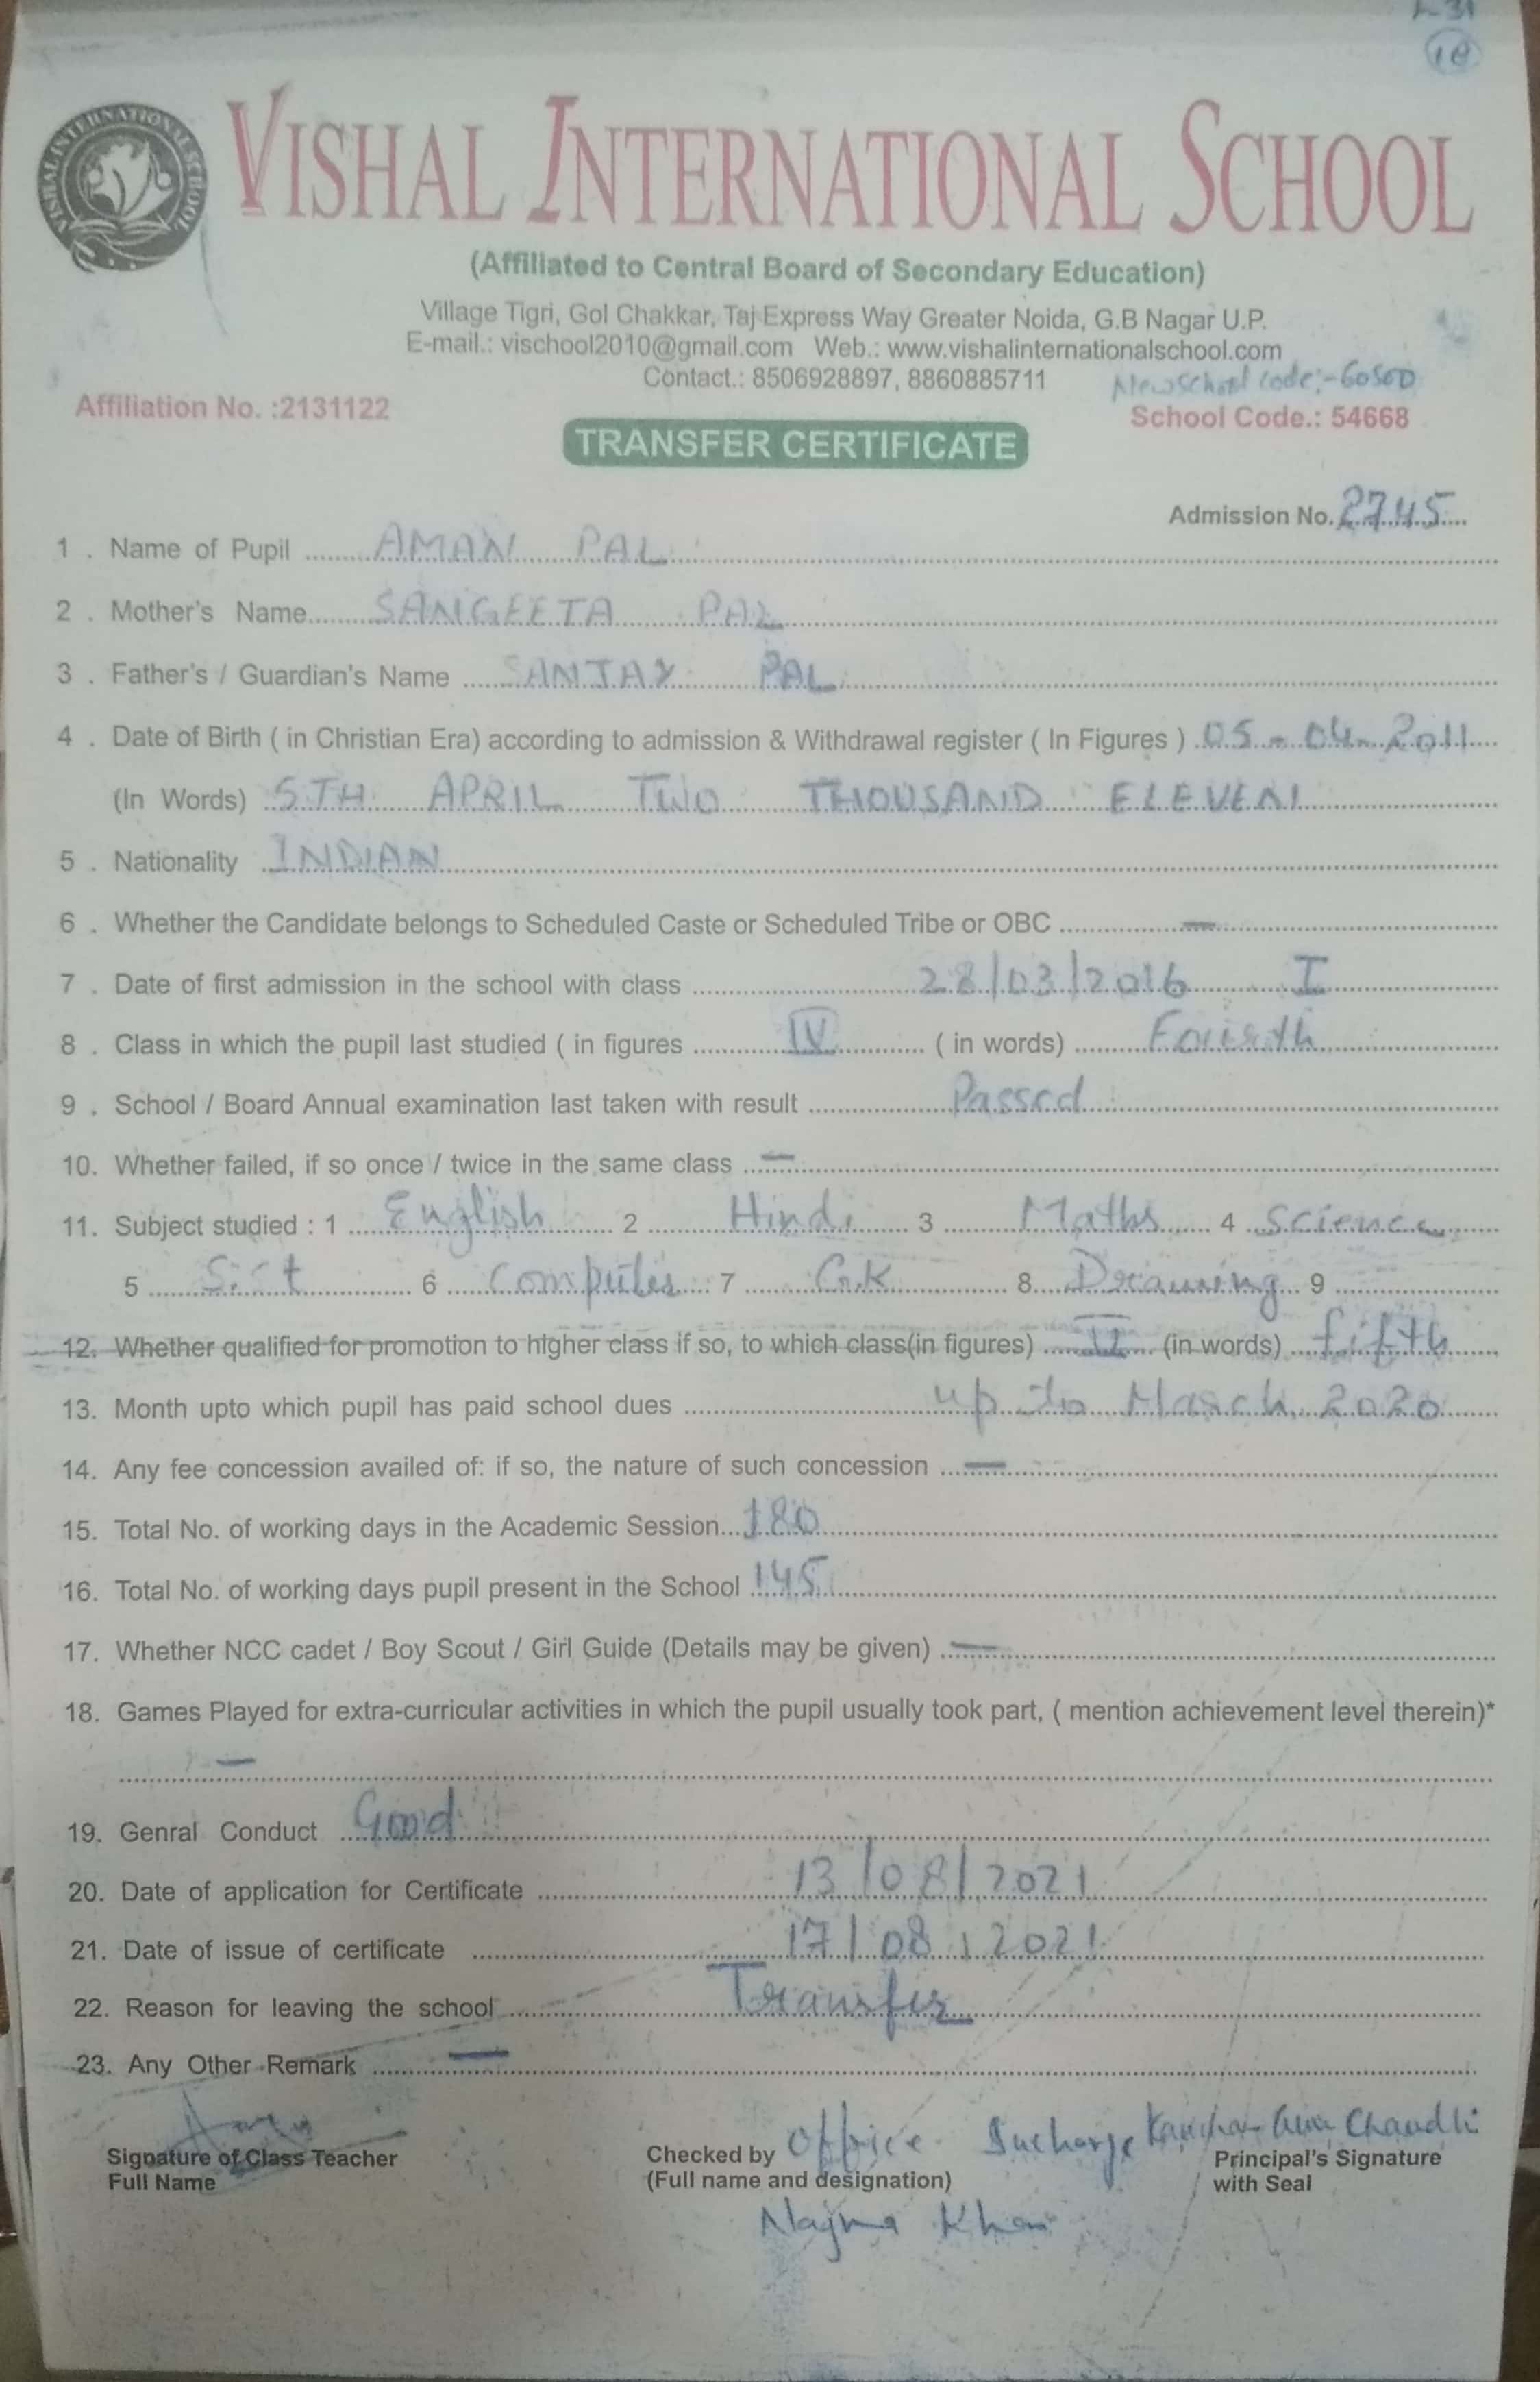 18
VISHAL INTERNATIONAL SCHOOL
VISHAL INTERNATIONAL SCHOOL
(Affiliated to Central Board of Secondary Education)
Village Tigri, Gol Chakkar, Taj Express Way Greater Noida, G.B Nagar U.P.
E-mail.: vischool2010@gmail.com Web.: www.vishalinternationalschool.com
Contact.: 8506928897, 8860885711
New School Code:-60500
Affiliation No. :2131122
School Code.: 54668
TRANSFER CERTIFICATE
Admission No. 2745
1 . Name of Pupil AMAN PAL
2 . Mother's Name SANGEETA PAL
3 . Father's / Guardian's Name SANJAY PAL
4 . Date of Birth ( in Christian Era) according to admission & Withdrawal register ( In Figures ) 05-04-2011
(In Words) 5TH APRIL TWO THOUSAND ELEVEN
5 . Nationality INDIAN
6 . Whether the Candidate belongs to Scheduled Caste or Scheduled Tribe or OBC —
7 . Date of first admission in the school with class 28/03/2016 I
8 . Class in which the pupil last studied ( in figures IV ( in words) Fourth
9 . School / Board Annual examination last taken with result Passed
10. Whether failed, if so once / twice in the same class —
11. Subject studied : 1 English 2 Hindi 3 Maths 4 Science
5 S.st 6 Computer 7 G.K 8 Drawing 9
12. Whether qualified for promotion to higher class if so, to which class(in figures) V (in words) fifth
13. Month upto which pupil has paid school dues up to March 2020
14. Any fee concession availed of: if so, the nature of such concession —
15. Total No. of working days in the Academic Session 180
16. Total No. of working days pupil present in the School 145
17. Whether NCC cadet / Boy Scout / Girl Guide (Details may be given) —
18. Games Played for extra-curricular activities in which the pupil usually took part, ( mention achievement level therein)*
—
19. Genral Conduct Good
20. Date of application for Certificate 13/08/2021
21. Date of issue of certificate 17/08/2021
22. Reason for leaving the school Transfer
23. Any Other Remark —
Signature of Class Teacher
Full Name
Checked by Office Incharge
(Full name and designation)
Najma Khan
Principal's Signature
with Seal